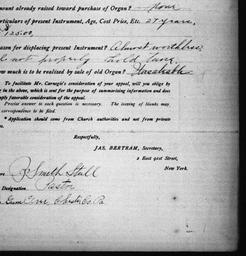 mount already raised toward purchase of Organ? none
articulars of present Instrument, Age, Cost Price, Etc. 27 years,
$125.00
eason for displacing present Instrument? Almost worthless
not properly hold tune
ow much is to be realized by sale of old Organ?
To facilitate Mr. Carnegie's consideration of this appeal, will you oblige
y in the above, which is sent for the purpose of summarizing information and does
ply favorable consideration of the appeal.
Precise answer to each question is necessary. The issuing of blanks may
correspondent to be overlooked.
Application should come from Church authorities and not from private
Respectfully,
JAS. BERTRAM, Secretary,
2 East 91st Street,
New York.
Smith Stull
Designation. Pastor
Chester Co Pa